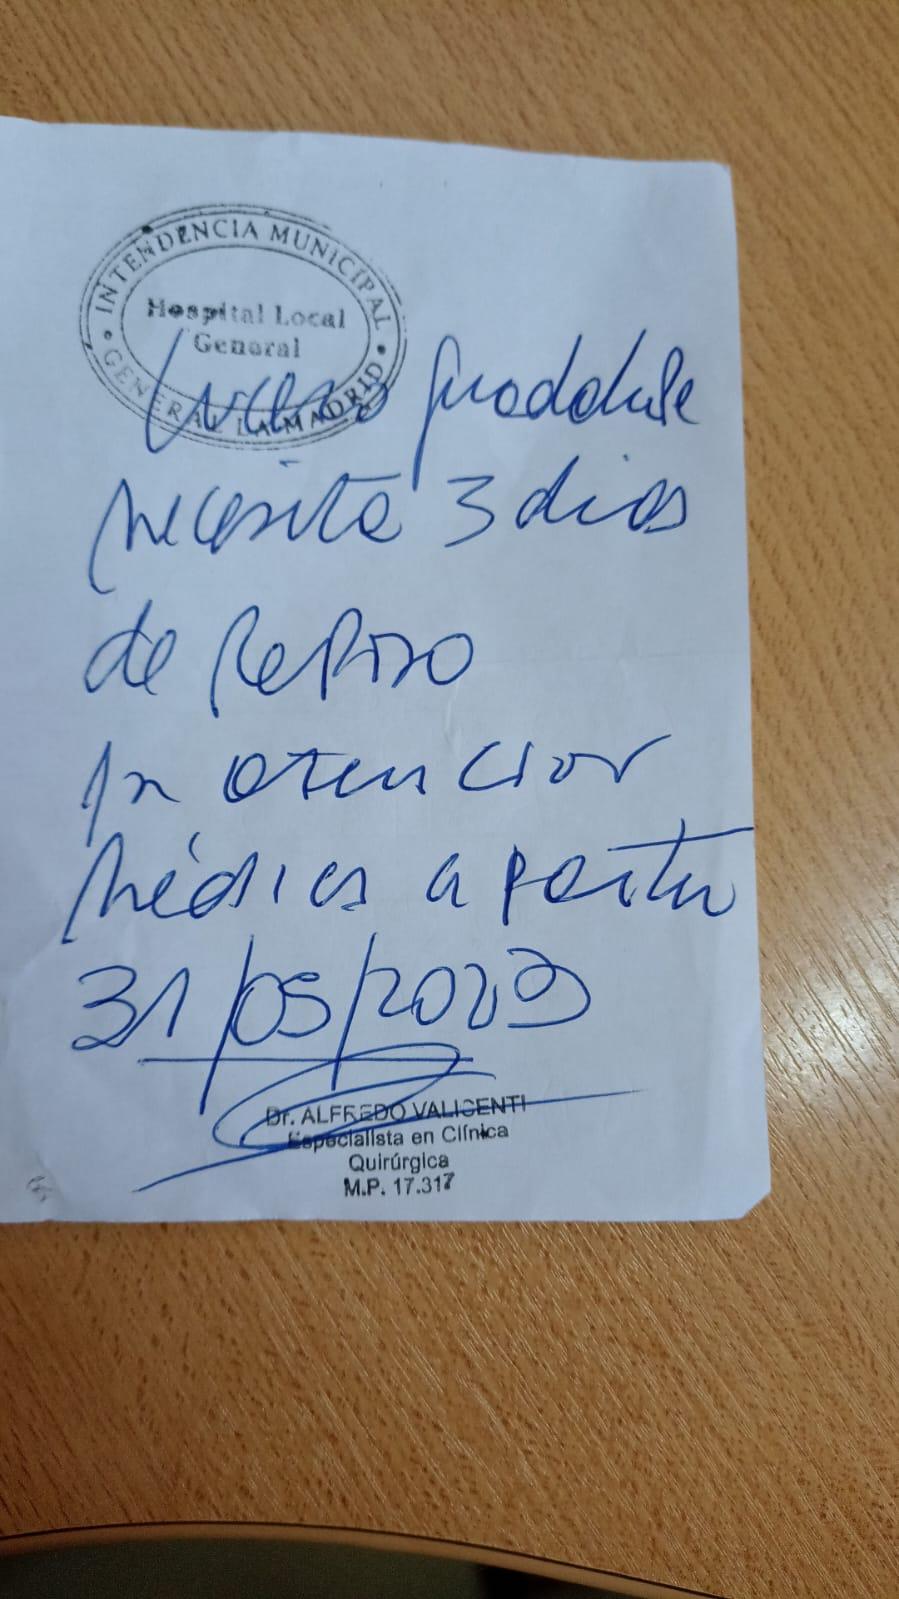 INTENDENCIA MUNICIPAL
Hospital Local
General
GENERAL LAMADRID
Guadalupe
necesita 3 dias
de Reposo
en atencion
Médica a partir
31/05/2023
Dr. ALFREDO VALICENTI
Especialista en Clínica
Quirúrgica
M.P. 17.317